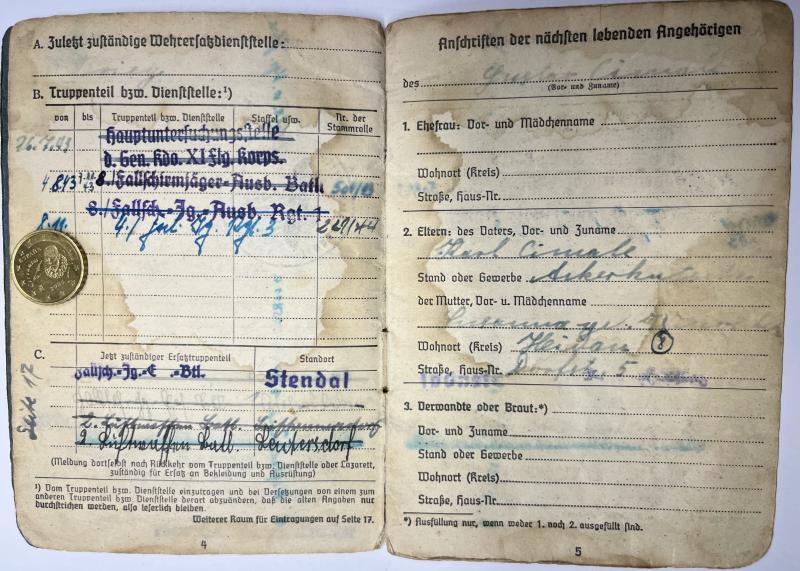 A. Zuletzt zuständige Wehrersatzdienststelle:
B. Truppenteil bzw. Dienststelle:¹)
von bis Truppenteil bzw. Dienststelle Staffel usw. Nr. der Stammrolle
26.7.43 Hauptuntersuchungsstelle
d. Gen. Kdo. XI Flg. Korps.
4.8.43 8./Fallschirmjäger-Ausb. Batl.
8./Fallsch.-Jg.-Ausb. Rgt. 1
8.11. 9./ Jg. Rgt. 3
C. Jetzt zuständiger Ersatztruppenteil Standort
Fallsch.-Jg.-E .-Btl. Stendal
2. Luftwaffen Batl.
2. Luftwaffen Batl. Leutersdorf
Seite 17
(Meldung dortselbst nach Rückkehr vom Truppenteil bzw. Dienststelle oder Lazarett,
zuständig für Ersatz an Bekleidung und Ausrüstung)
¹) Vom Truppenteil bzw. Dienststelle einzutragen und bei Versetzungen von einem zum
anderen Truppenteil bzw. Dienststelle derart abzuändern, daß die alten Angaben nur
durchstrichen werden, also leserlich bleiben.
Weiterer Raum für Eintragungen auf Seite 17.
4
Anschriften der nächsten lebenden Angehörigen
des
(Vor- und Zuname)
1. Ehefrau: Vor- und Mädchenname
Wohnort (Kreis)
Straße, Haus-Nr.
2. Eltern: des Vaters, Vor- und Zuname
Karl
Stand oder Gewerbe
der Mutter, Vor- u. Mädchenname
Wohnort (Kreis) 8
Straße, Haus-Nr. 5
3. Verwandte oder Braut:*)
Vor- und Zuname
Stand oder Gewerbe
Wohnort (Kreis)
Straße, Haus-Nr.
*) Ausfüllung nur, wenn weder 1. noch 2. ausgefüllt sind.
5